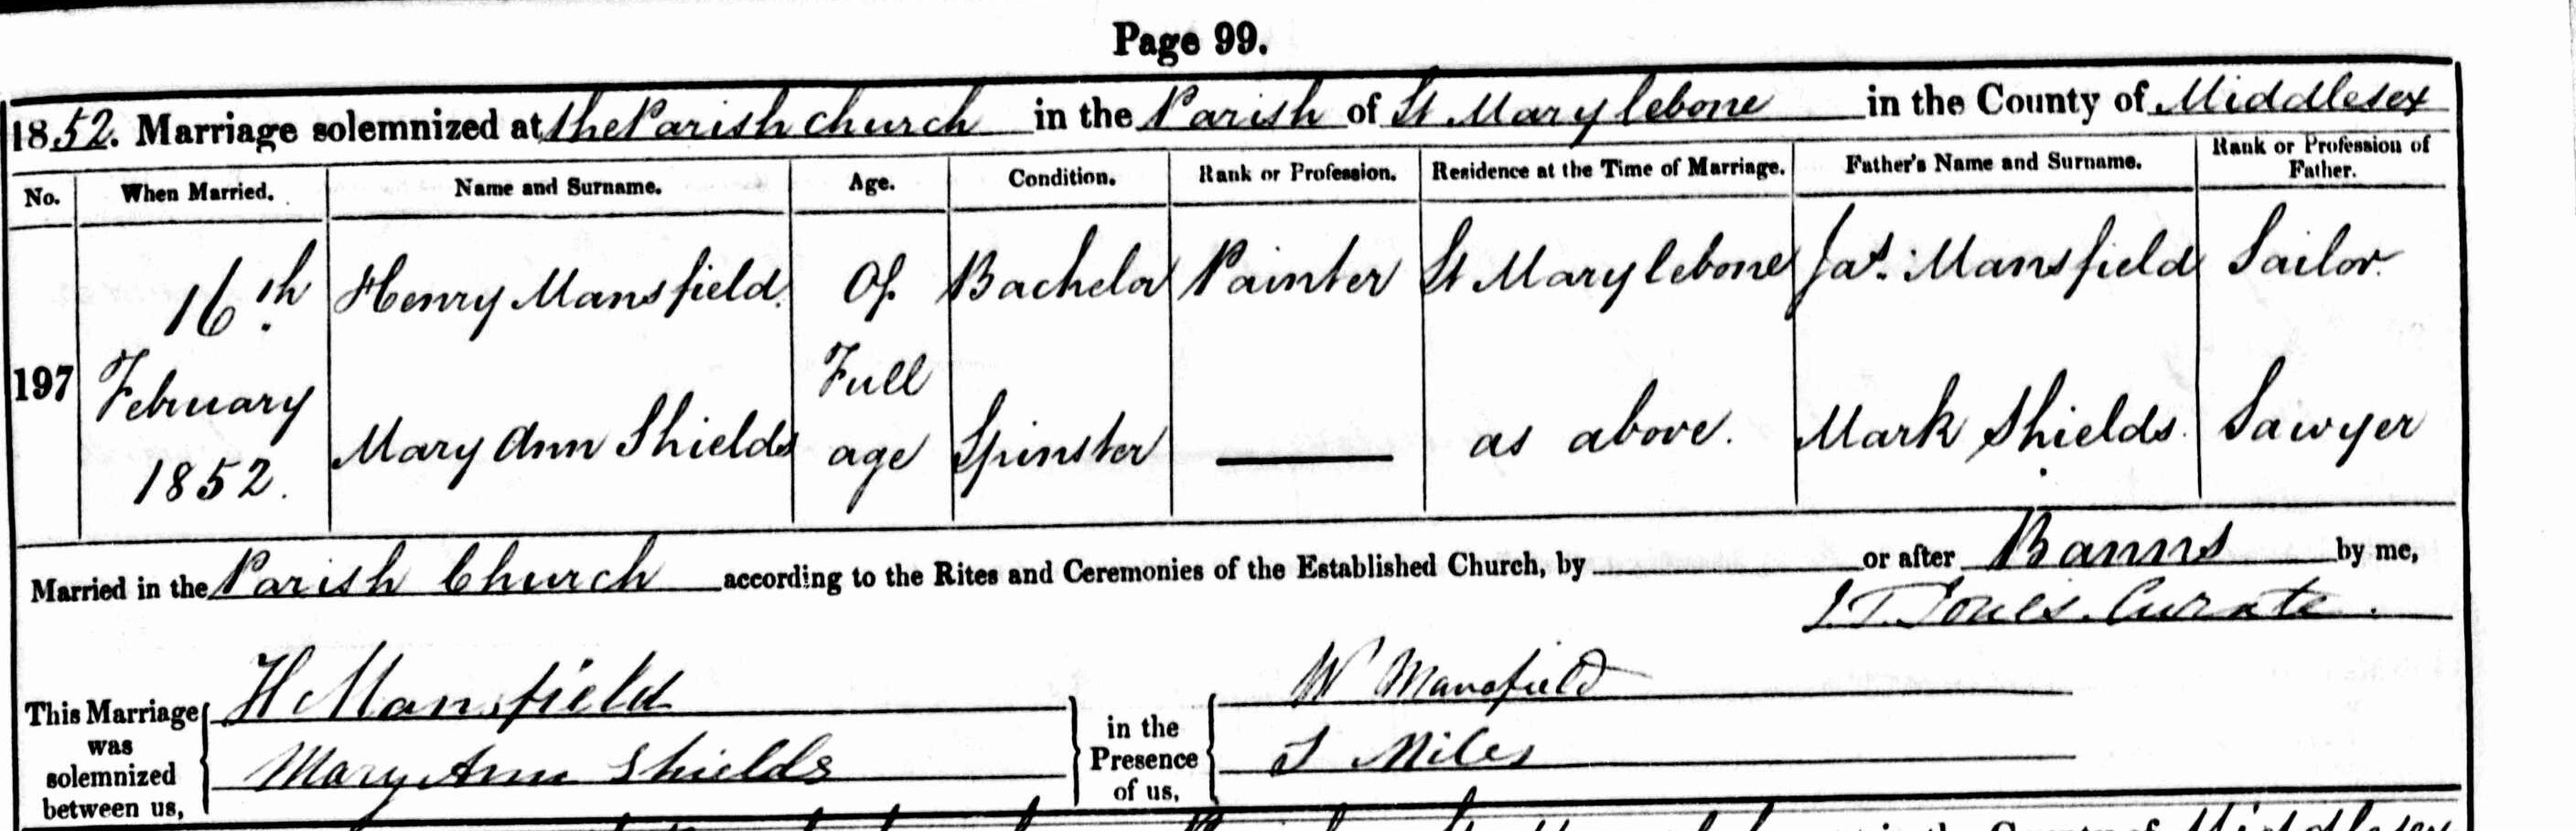 Page 99.
1852. Marriage solemnized at the Parish church in the Parish of St Marylebone in the County of Middlesex
No. When Married. Name and Surname. Age. Condition. Rank or Profession. Residence at the Time of Marriage. Father's Name and Surname. Rank or Profession of Father.
197 16th February 1852. Henry Mansfield. Of Full age Bachelor Painter St Marylebone Jas. Mansfield Sailor.
Mary Ann Shields Spinster — as above. Mark Shields. Sawyer
Married in the Parish Church according to the Rites and Ceremonies of the Established Church, by or after Banns by me,
Jones. Curate.
This Marriage was solemnized between us, H Mansfield in the Presence of us, W Mansfield
Mary Ann Shields Miles
in the County of Middlesex